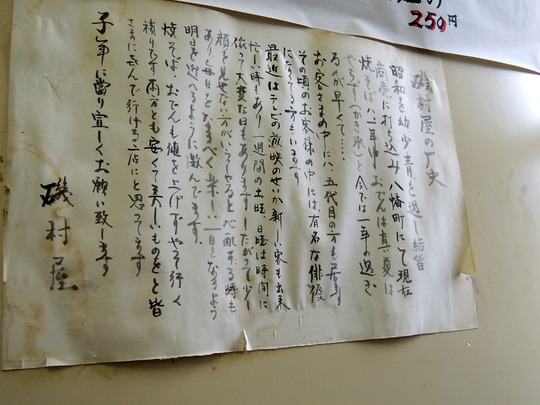 磯村屋の歴史
昭和を幼少青を過し結婚
商売に打ち込み八幡町にて現在
焼そばは一年中、おでんは真夏は
やらず(かき氷)と今では一年の過ぎ
るのが早くて……
お客さまの中には五代目の方も居ます
その頃のお客様の中には有名な俳優
になってる方もいます
最近はテレビの放映のせいか新しい客も出来
忙しい時もあり一週間の土曜、日曜は時間に
依って大変な日もあります。したがって少し
顔を見せない方がいるとやると心配する時も
あり毎日となるべく楽しい一日となるよう
明日を迎へるように励んでます。
焼そば、おでんも値を上げずやって行く
積りです両方とも安くて美しいものをと皆
さまに喜んで行ける店にと思ってます
子年に当り宜しくお願い致します
磯村屋
の
250円